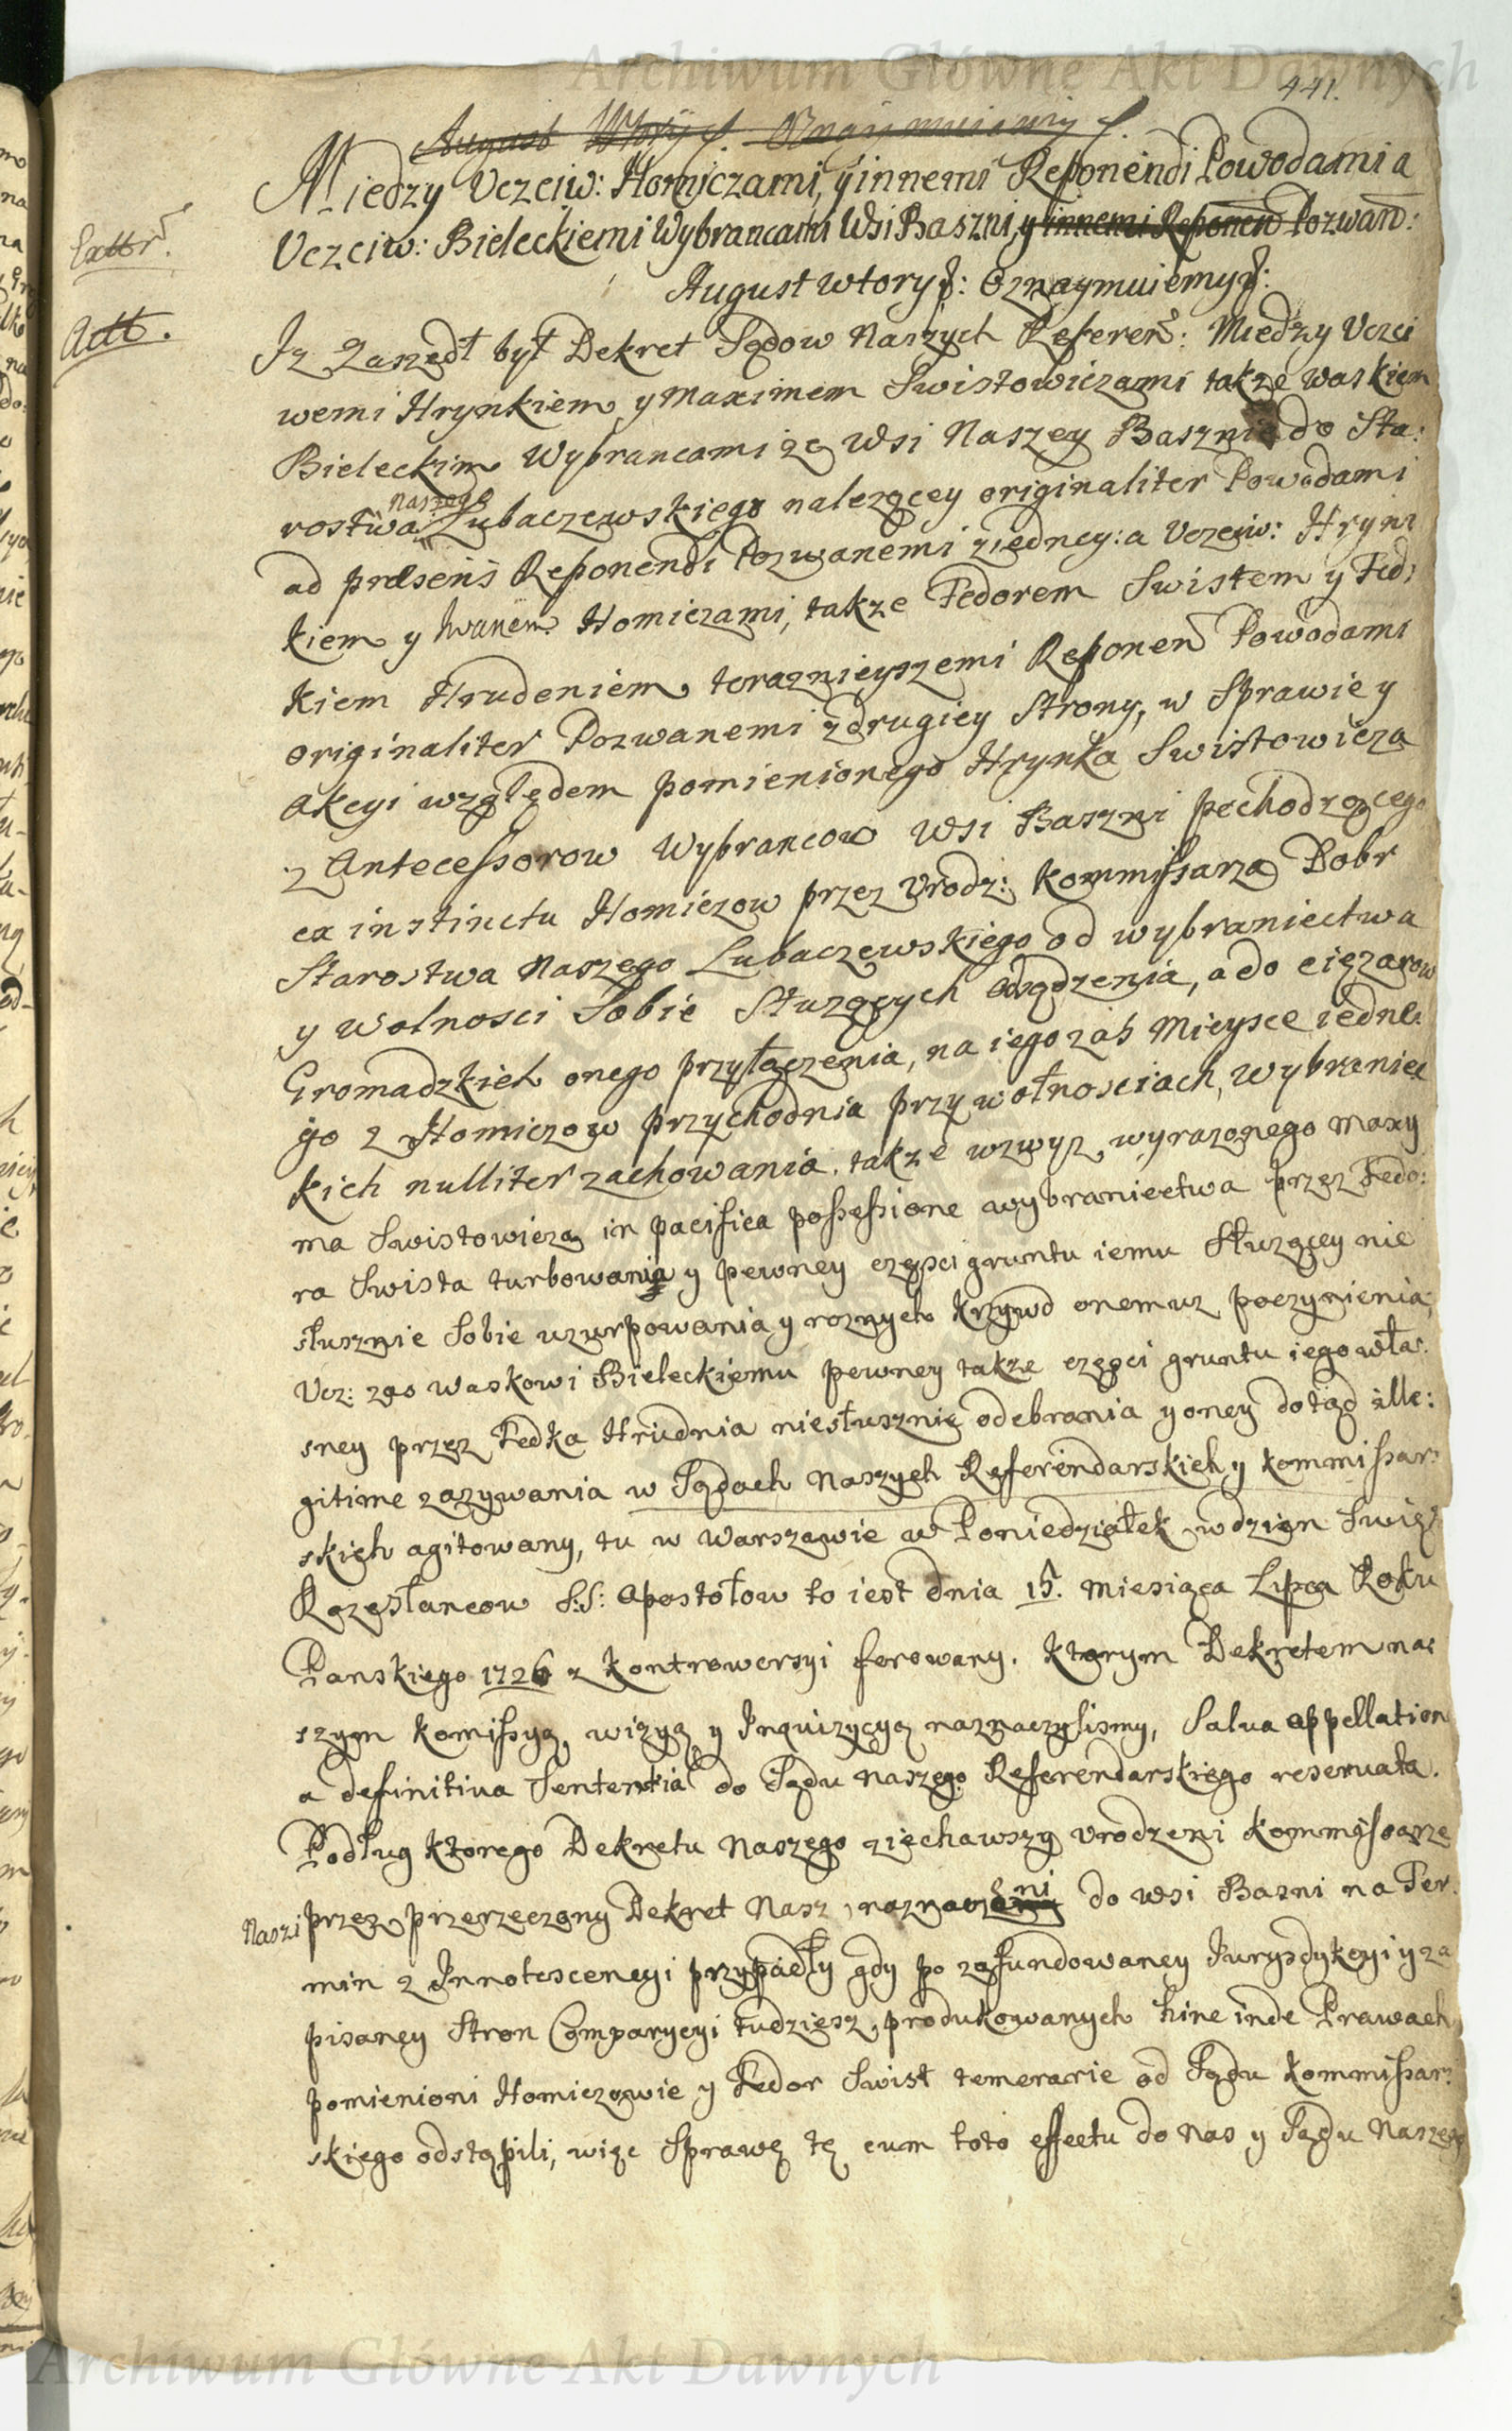 Archiwum Główne Akt Dawnych
441.
August Wtory p. Oznaymuiemy p.
Miedzy Uczciw: Homiczami, y innemi Reponendi Powodami a
Uczciw: Bieleckiemi Wybrancami Wsi Baszni, y innemi Reponen Pozwan:
August wtory p: Oznaymuiemy p:
Extr.
Act.
Iz Zaszedł był Dekret Sądow Naszych Referen: Miedzy Uczci
wemi Hrynkiem y Maximem Swistowiczami także Waskiem
Bieleckim Wybrancami ze Wsi Naszey Baszni do Sta:
rostwa Naszego Lubaczewskiego nalezącey originaliter Powodami
ad præsens Reponendi Pozwanemi z iedney: a Uczciw: Hryni
kiem y Iwanem Homiczami, takze Fedorem Swistem y Fed:
kiem Hrudeniem, teraznieyszemi Reponen Powodami
originaliter Pozwanemi z drugiey Strony, w Sprawie y
Akcyi względem pomienionego Hrynka Swistowicza
z Antecessorow Wybrancow Wsi Baszni pochodzącego
ex instinctu Homiczow przez Urodz: Kommissarza Dobr
Starostwa Naszego Lubaczewskiego od wybraniectwa
y wolnosci Sobie Służących odsądzenia, a do ciężarow
Gromadzkich onego przyłączenia, na iego zaś Mieysce iedne:
go z Homiczow przychodnia przy wolnosciach, wybraniec
kich nulliter zachowania, także wzwyz wyrazonego Maxy
ma Swistowicza in pacifica possessione wybraniectwa przez Fedo:
ra Swista turbowania y pewney częsci gruntu iemu Służącey nie
słusznie Sobie uzurpowania y roznych krzywd onemuz poczynienia;
Ucz: zas Waskowi Bieleckiemu pewney także częsci gruntu iego wła:
sney przez Fedka Hrudnia niesłusznie odebrania y oney dotąd ille:
gitime zazywania w Sądach Naszych Referendarskich y Kommissar:
skich agitowany, tu w Warszawie w Poniedziałek w dzien Swięt
Rozesłancow S:S: Apostołow to iest dnia 15. Miesiąca Lipca Roku
Panskiego 1726 z Kontrowersyi ferowany. Ktorym Dekretem na:
szym Komissyą, wizyą y Inquizycyą naznaczylismy, Salva appellation
a definitiva Sententia do Sądu Naszego Referendarskiego reservata.
Podług ktorego Dekretu Naszego ziechawszy Urodzeni Kommissarze
Naszi przez przerzeczony Dekret Nasz, naznaczeni do wsi Basni na Ter:
min z Innotescencyi przypadły gdy po zafundowaney Iurysdykcyi y za
pisaney Stron Comparycyi tudziesz, produkowanych hinc inde Prawach
pomienioni Homiczowie y Fedor Swist temerarie od Sądu Kommissar:
skiego odstąpili, więc Sprawę tę cum toto effectu do Nas y Sądu Naszego
Archiwum Główne Akt Dawnych